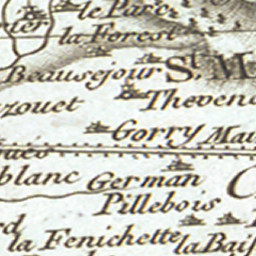 le Parc
la Forest
Beausejour St. M
zouet Theven
Gorry Mau
blanc German
Pillebois
la Fenichette la Bai